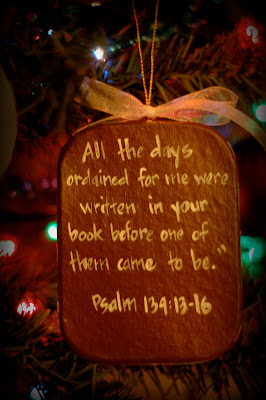 All the days
ordained for me were
written in your
book before one of
them came to be."
Psalm 139:13-16